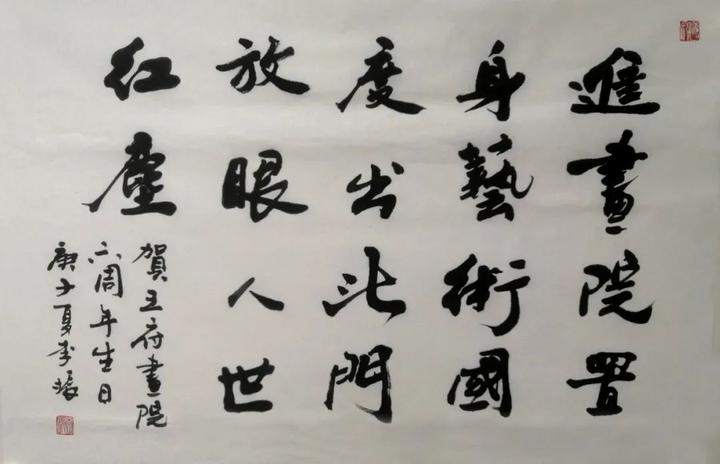 進畫院置
身藝術國
度出此門
放眼人世
紅塵
賀王府畫院
六周年生日
庚子夏李振